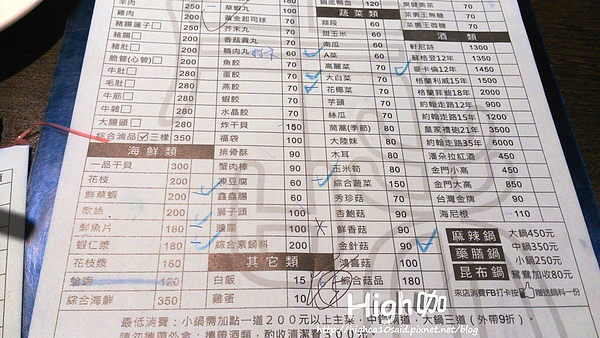 羊肉
雞肉
豬腸蓮子
豬腸
豬肚
脆管(心管)
牛肚 280
毛肚 280
牛筋 200
牛雜 200
大腸頭 280
綜合滷品 三樣 350
海鮮類
一品干貝 300
花枝 200
鮮草蝦 200
軟絲 200
鮮魚片 180
蝦仁漿 180
花枝漿 160
蛤蠣 120
綜合海鮮 350
草蝦丸
黃金起司球 70
芥末丸 70
香菇貢丸 70
鴨肉丸 60
魚餃 70
蛋餃 70
燕餃 70
蝦餃 70
水晶餃 70
炸干貝 150
福袋 100
排骨酥 90
蟹肉棒 90
凍豆腐 60
鑫鑫腸 60
獅子頭 100
腰腸 100
綜合素餚料 200
其它類
白飯 15
雞蛋 10
鍋底鴨血 120
蔬菜類
茼段 60
甜玉米 60
南瓜 60
A菜 60
高麗菜 70
大白菜 70
花椰菜 70
芋頭 70
絲瓜 70
茼蒿(季節) 80
大陸妹 80
木耳 80
玉米筍 80
綜合蔬菜 150
秀珍菇 70
杏鮑菇 90
鮮香菇 90
金針菇 90
鴻喜菇 100
綜合菇品 180
爽健美茶
茶裏王無糖
茶裏王微糖
酒類
軒尼詩 1300
蘇格登12年 1350
麥卡倫12年 1450
格蘭利威15年 1500
格蘭菲迪18年 2000
約翰走路12年 900
約翰走路15年 1100
皇家禮砲21年 3500
約翰走路35年 6000
潘朵拉紅酒 450
金門小高 450
金門大高 850
台灣金牌 90
海尼根 110
麻辣鍋 大鍋450元
藥膳鍋 中鍋350元
昆布鍋 小鍋250元
鴛鴦加收80元
來店消費FB打卡按 贈送鍋料一份
最低消費：小鍋需加點一道200元以上主菜，中鍋兩道，大鍋三道(外帶9折)。
請勿攜帶外食，攜帶酒類，酌收清潔費300元。
High咖
http://highca10said.pixnet.net/blog